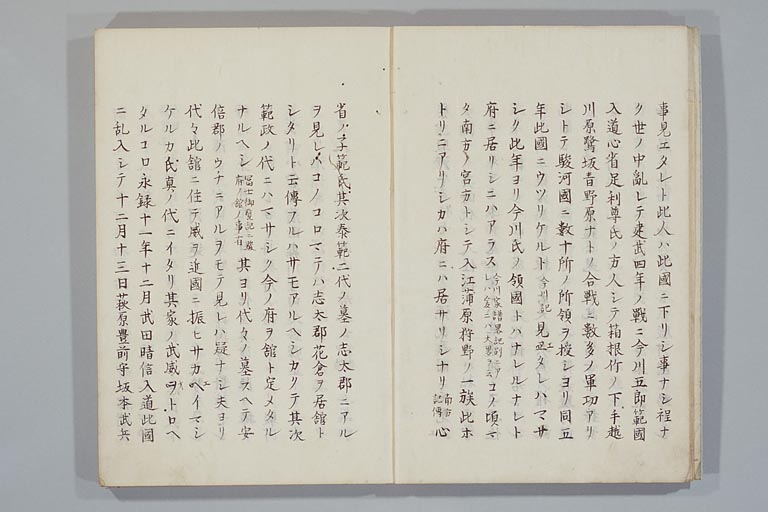 事見エタレト此人ハ此國ニ下リシ事ナシ程ナ
ク世ノ中亂レテ建武四年ノ戰ニ今川五郎範國
入道心省足利尊氏ノ方人シテ箱根竹ノ下手越
川原鷺坂青野原ナトノ合戰ニ數多ノ軍功アリ
シトテ駿河國ニ數十所ノ所領ヲ授シヨリ同五
年此國ニウツリケルト今川記ニ見エタレハマサ
シク此年ヨリ今川氏ノ領國トハナレルナレト
府ニ居リシニハアラス今川家譜畧記別ニアコノ頃マ
タ南方ノ宮方トシテ入江蒲原狩野ノ一族此ホ
トリニアリシカハ府ニハ居サリシナリ南方記傳心
省ノ子範氏其次泰範二代ノ墓ノ志太郡ニアル
ヲ見レハコノコロマテハ志太郡花倉ヲ居舘ト
シタリト云傳フルハサモアルヘシカクテ其次
範政ノ代ニハマサシク今ノ府ヲ舘ト定メタル
ナルヘシ冨士御覧記ニ駿府ノ舘ノ事有其ヨリ代々ノ墓スヘテ安
倍郡ノウチニアルヲモテ見レハ疑ナシ夫ヨリ
代々此舘ニ住テ威ヲ近國ニ振ヒサカエイマシ
ケルカ氏真ノ代ニイタリ其家ノ武威ヲトロヘ
タルコロ永録十一年十二月武田晴信入道此國
ニ乱入シテ十二月十三日萩原豊前守坂本武兵